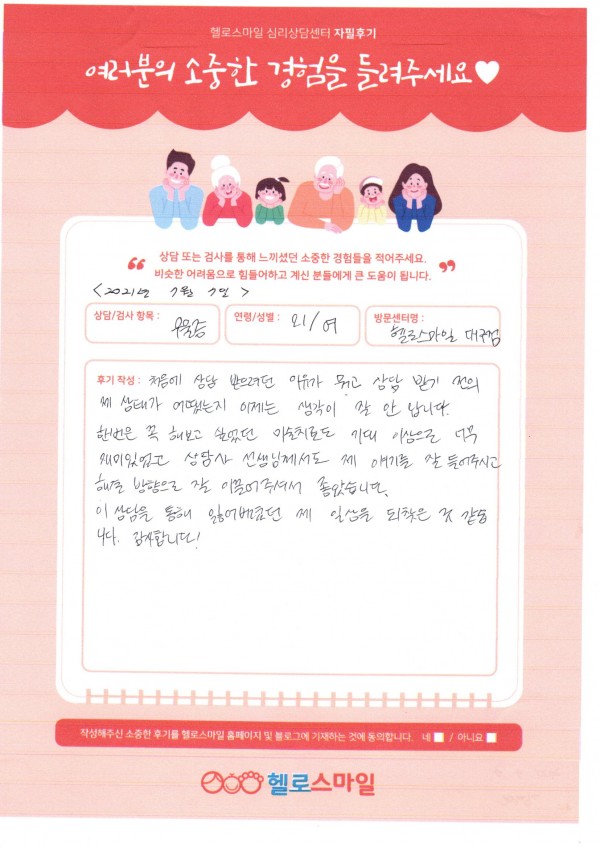 헬로스마일 심리상담센터 자필후기
여러분의 소중한 경험을 들려주세요
“ 상담 또는 검사를 통해 느끼셨던 소중한 경험들을 적어주세요.
비슷한 어려움으로 힘들어하고 계신 분들에게 큰 도움이 됩니다. ”
< 2021년 7월 7일 >
상담/검사 항목 : 우울증
연령/성별 : 21/여
방문센터명 : 헬로스마일 대구점
후기 작성 : 처음에 상담 받으려던 이유가 뭐고 상담 받기 전의
제 상태가 어땠는지 이제는 생각이 잘 안 납니다.
한번은 꼭 해보고 싶었던 미술치료도 기대 이상으로 너무
재미있었고 상담사 선생님께서도 제 얘기를 잘 들어주시고
해결 방향으로 잘 이끌어주셔서 좋았습니다.
이 상담을 통해 잃어버렸던 제 일상을 되찾은 것 같습
니다. 감사합니다!
작성해주신 소중한 후기를 헬로스마일 홈페이지 및 블로그에 기재하는 것에 동의합니다. 네 / 아니요
헬로스마일